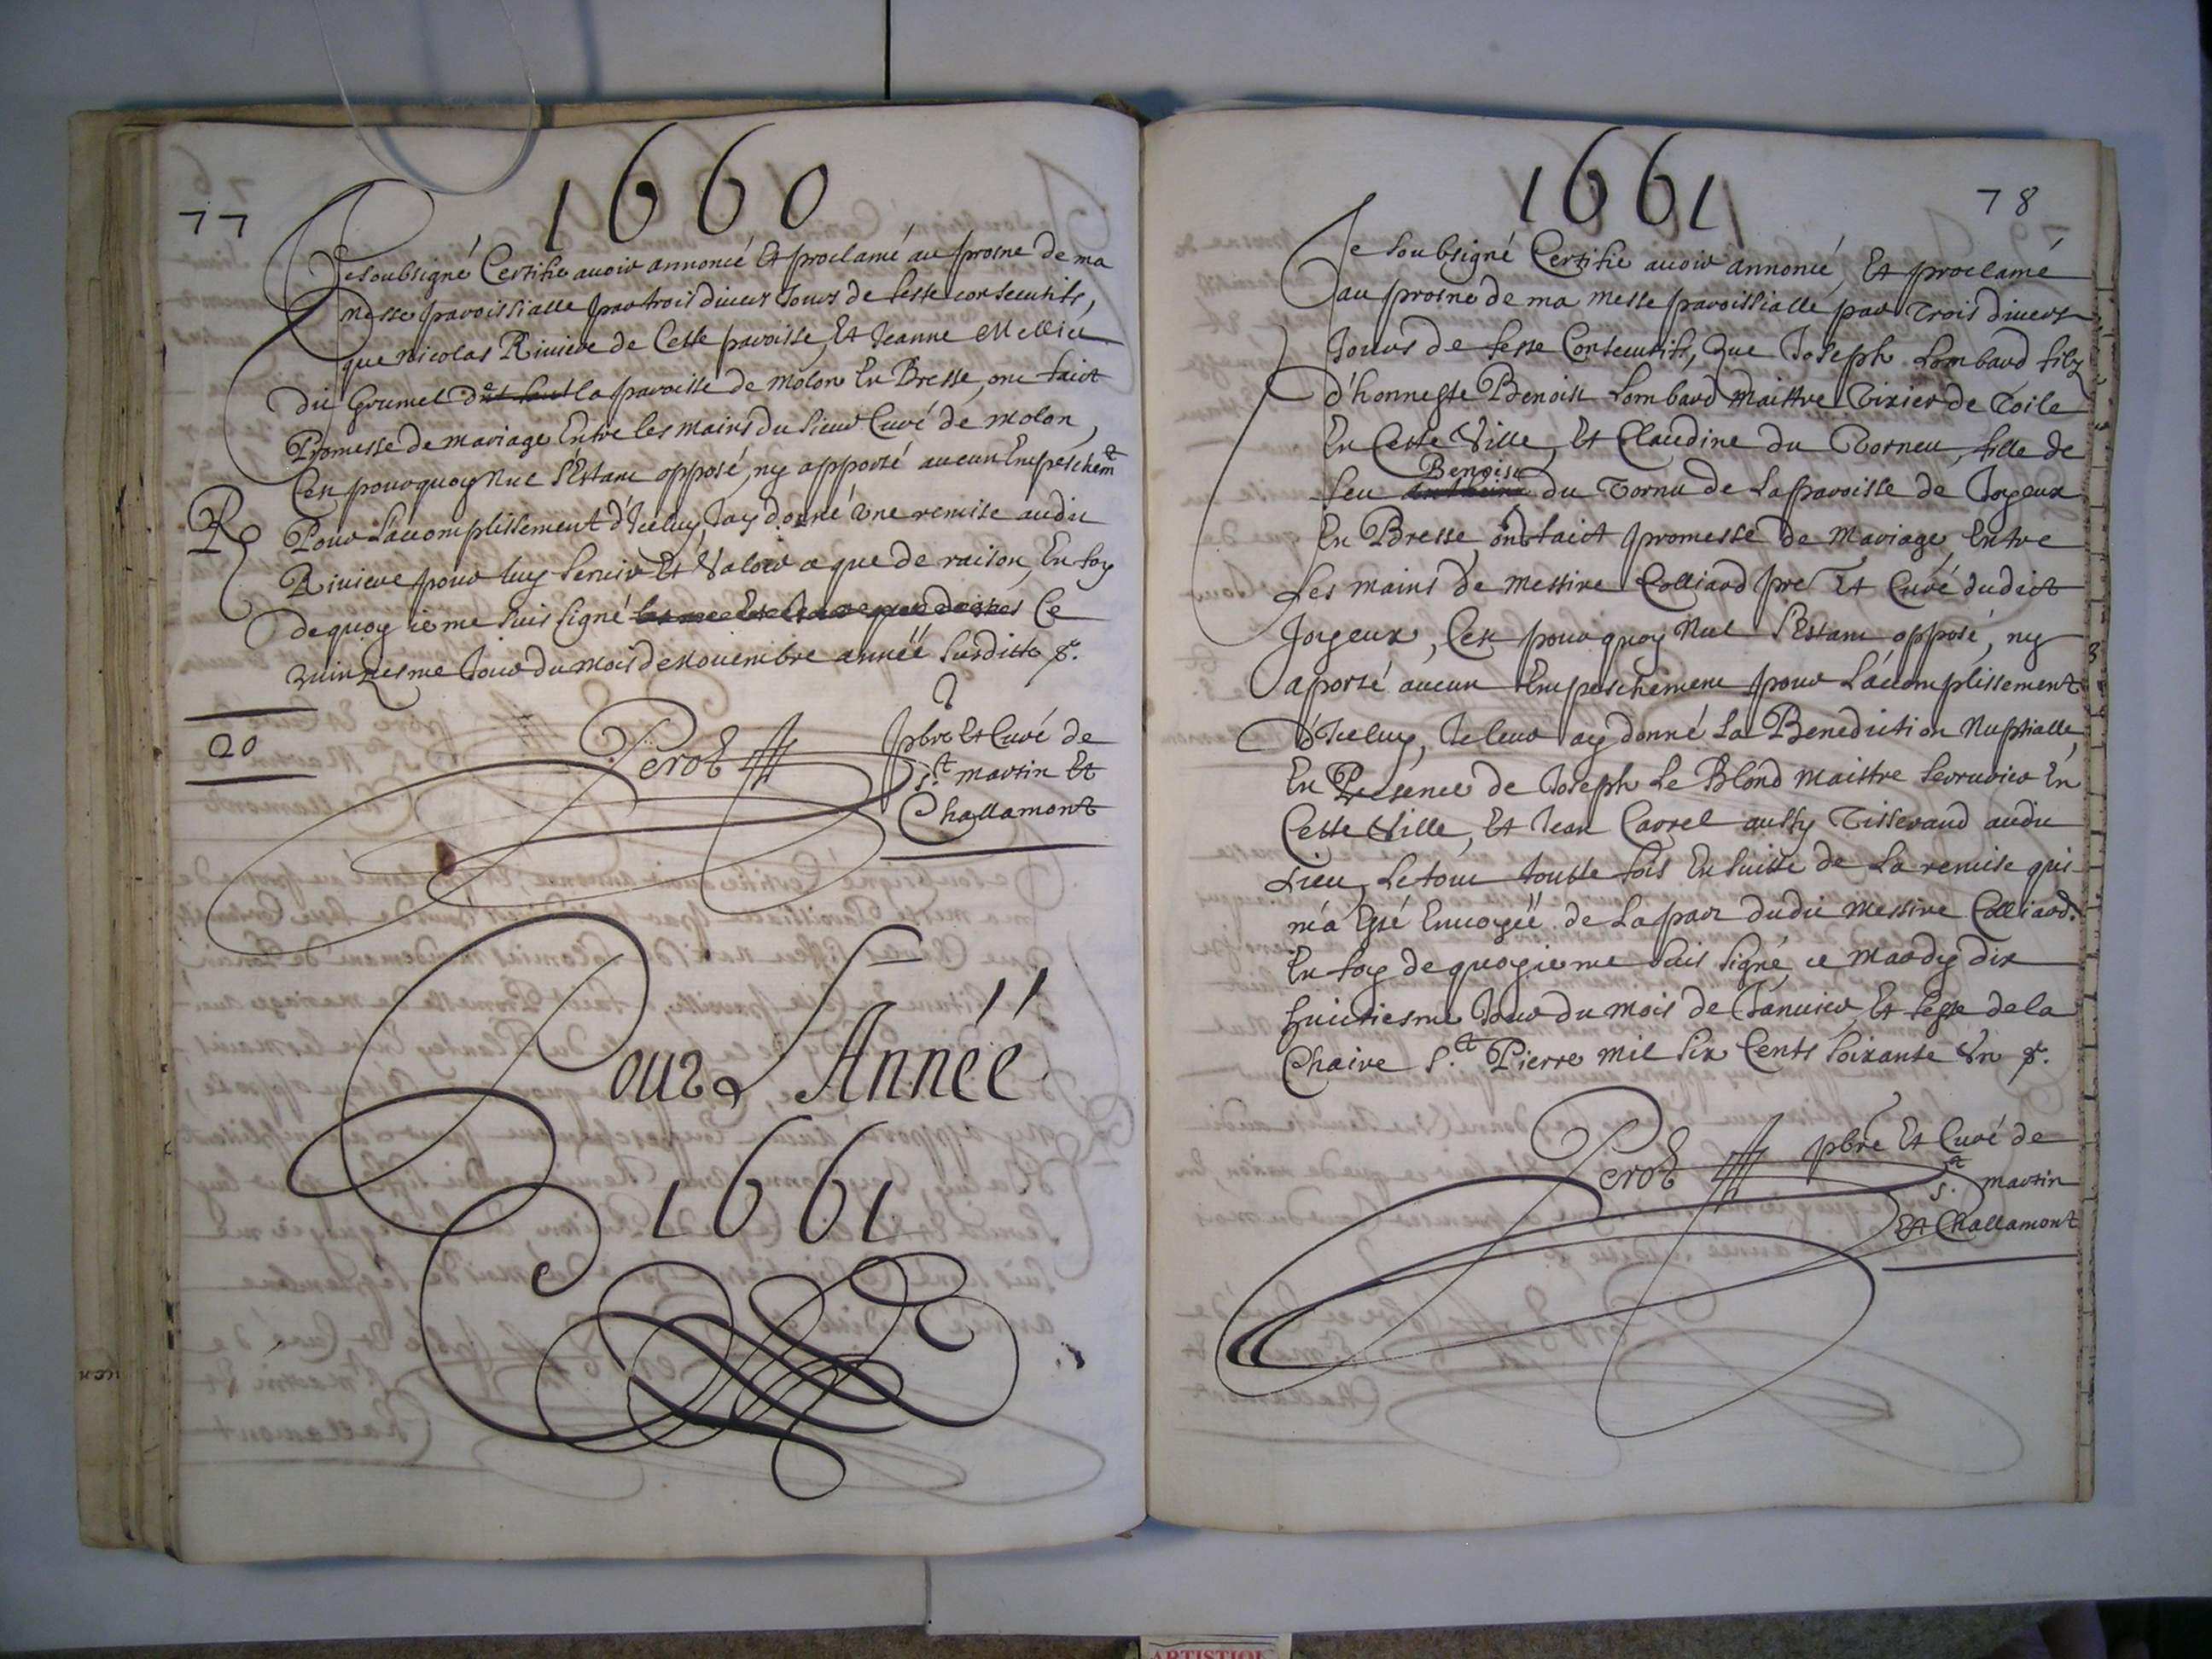 1660
77
Je soubsigné Certifie avoir annoncé Et proclamé au prosne de ma
messe paroissialle par trois divers Jours de feste consecutifs,
que Nicolas Riviere de Cette paroisse, Et Jeanne Mellier
du Grumel la paroisse de Molon En Bresse, ont faict
Promesse de mariage Entre les mains du Sieur Curé de Molon,
C'est pourquoy Nul s'Estant opposé, ny apporté aucun Empeschemt
R
Pour L'accomplissement d'Iceluy, J'ay donné une remise audit
Riviere pour luy Servir Et Valoir ce que de raison, En foy
dequoy ie me suis signé Ce
Quinziesme Jour du mois de Novembre année Susditte &.
20
Perot
pbre Et Curé de
St martin Et
Challamont
Pour L'Année
1661
1661
78
Je soubsigné Certifie avoir annoncé, Et proclamé
au prosne de ma messe paroissialle par Trois divers
Jours de feste Consecutifs, Que Joseph Lombard filz
d'honneste Benoist Lombard Maistre Tixier de Toile
En Cette Ville, Et Claudine du Torneu, fille de
Benoist
feu du Tornu de La paroisse de Joyeux
En Bresse, ont faict promesse de Mariage, Entre
Les mains de Messire Colliard pre Et Curé dudict
Joyeux, C'est pourquoy Nul s'Estant opposé, ny
aporté aucun Empeschement pour L'accomplissement
d'Iceluy, Je leur ay donné La Benediction Nuptialle,
En Presence de Joseph Le Blond Maistre Serrurier En
Cette Ville, Et Jean Carrel aussy Tisserand audit
Lieu, Le tout toutte fois En suitte de La remise qui
m'a Esté Envoyéé de La part dudit Messire Colliard.
En foy de quoy ie me suis signé, ce Mardy dix
huictiesme Jour du mois de Janvier, Et feste de la
Chaire St Pierre mil six Cents soixante Un &.
Perot
pbre Et Curé de
St martin
Et Challamont
ARTISTIQ